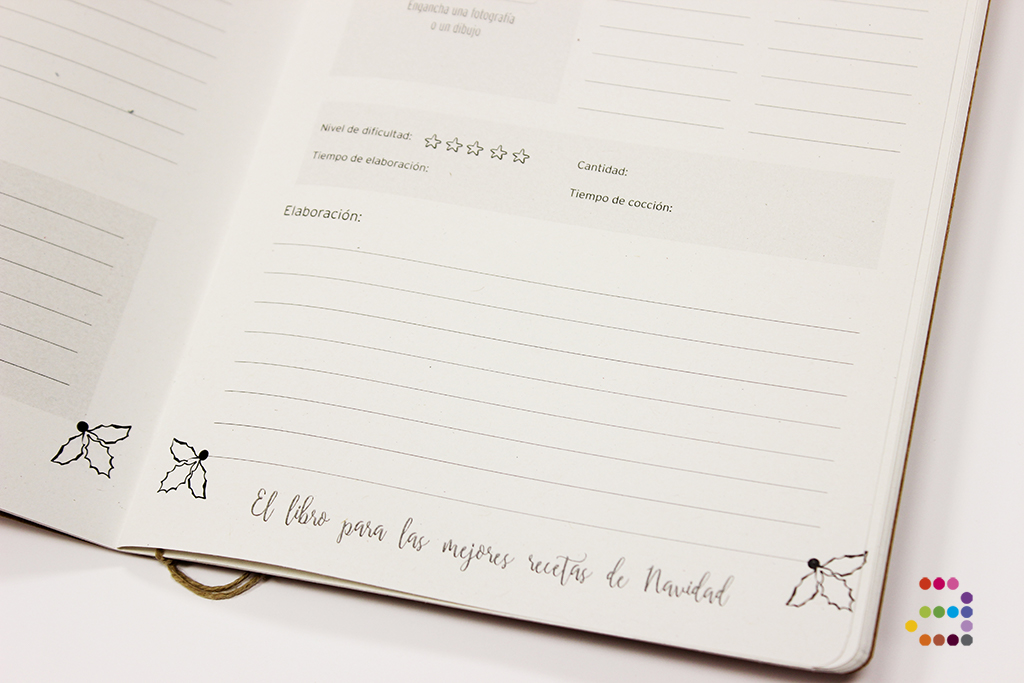 Engancha una fotografía
o un dibujo
Nivel de dificultad:
Tiempo de elaboración:
Cantidad:
Tiempo de cocción:
Elaboración:
El libro para las mejores recetas de Navidad